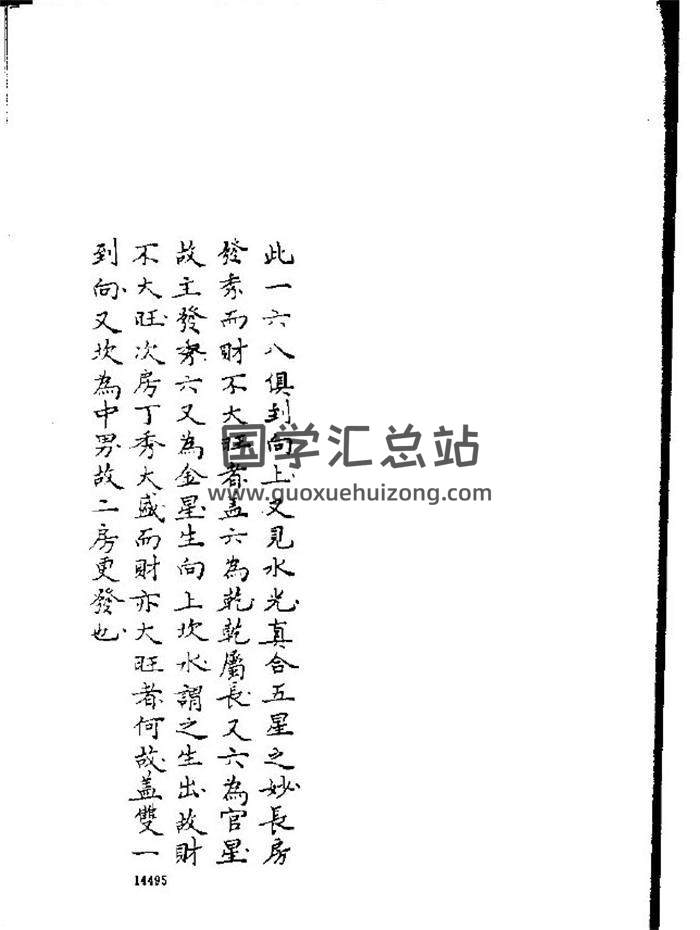 此一六八俱到向上又見水光真合五星之妙長房
發秀而財不大旺者盖六為乾乾屬長又六為官星
故主發秀六又為金星生向上坎水謂之生出故財
不大旺次房丁秀大盛而財亦大旺者何故盖雙一
到向又坎為中男故二房更發也
国学汇总站
www.guoxuehuizong.com
14495